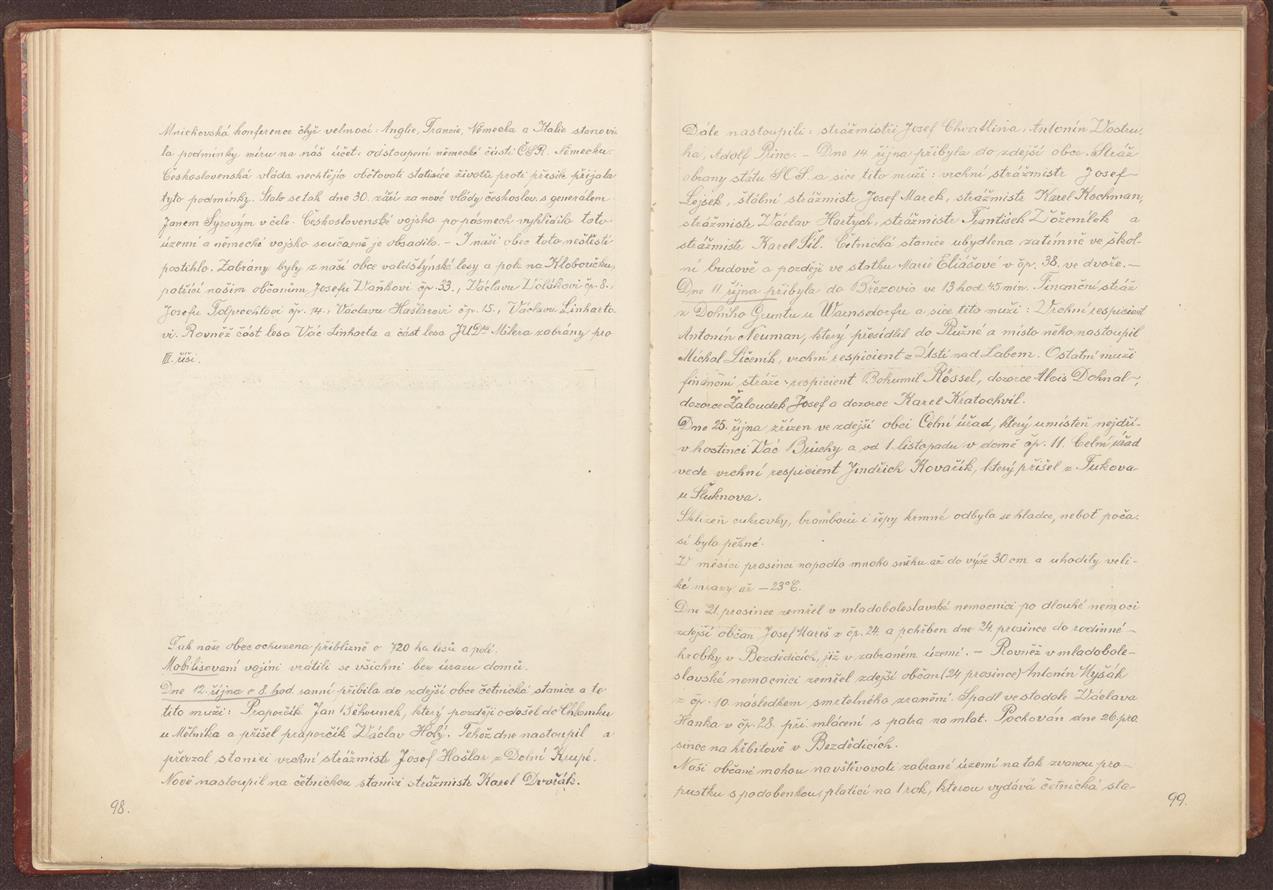 Mnichovská konference čtyř velmocí: Anglie, Francie, Německa a Italie stanovi-
la podmínky míru na náš účet: odstoupení německé části ČSR. Německu.
Československá vláda nechtějíc obětovati statisíce životů proti přesile přijala
tyto podmínky. Stalo se tak dne 30. září za nové vlády českoslov. s generálem
Janem Syrovým v čele. Československé vojsko po pásmech vyklidilo toto
území a německé vojsko současně je obsadilo. – I naši obec toto neštěstí
postihlo. Zabrány byly z naší obce valdštýnské lesy a pole na Kloboučku,
patřící našim občanům, Josefu Vaňkovi čp. 33., Václavu Volákovi čp. 8.,
Josefu Podprochtovi čp. 14., Václavu Haštarovi čp. 15., Václavu Linharto-
vi. Rovněž část lesa Vác Linharta a část lesa JUDra Milera zabrány pro
III. říši.
Tak naše obec ochuzena přibližně o 720 ha lesů a polí.
Mobilisovaní vojíni vrátili se všichni bez úrazu domů.
Dne 12. října o 8 hod. ranní přibila do zdejší obce četnická stanice a to
tito muži: Praporčík Jan Běhounek, který později odešel do Chlomku
u Mělníka a přišel praporčík Václav Holý. Tehož dne nastoupil a
převzal stanici vrchní strážmistr Josef Hašlar z Dolní Krupé.
Nově nastoupil na četnickou stanici strážmistr Karel Dvořák.
98.
Dále nastoupili: strážmistři Josef Chvátlina, Antonín Vostru-
ha, Adolf Princ. – Dne 14. října přibyla do zdejší obce Stráž
obrany státu S.O.S. a sice tito muži: vrchní strážmistr Josef
Lejsek, štábní strážmistr Josef Marek, strážmistr Karel Kochman,
strážmistr Václav Hartych, strážmistr František Zožemlek a
strážmistr Karel Šíl. Četnická stanice ubydlena zatímně ve škol-
ní budově a později ve statku Marie Eliášové v čp. 38. ve dvoře. –
Dne 11 října přibyla do Březovic ve 13 hod 45 min. Finanční stráž
z Dolního Gruntu u Warnsdorfu a sice tito muži: Vrchní respicient
Antonín Neuman, který přesídlil do Plužné a místo něho nastoupil
Michal Ličeník, vrchní respicient z Ústí nad Labem. Ostatní muži
finanční stráže: respicient Bohumil Rössel, dozorce Alois Dohnal,
dozorce Žaloudek Josef a dozorce Karel Kratochvíl.
Dne 25. října zřízen ve zdejší obci Celní úřad, který umístěn nejdří-
v hostinci Vác Brůchy a od 1. listopadu v domě čp. 11. Celní úřad
vede vrchní respicient Jindřich Kovařík, který přišel z Fukova
u Šluknova.
Sklizeň cukrovky, bramborů i řepy krmné odbyla se hladce, neboť poča-
sí bylo pěkné.
V měsíci prosinci napadlo mnoho sněhu až do výše 30 cm a uhodily veli-
ké mrazy až –23°C.
Dne 21. prosince zemřel v mladoboleslavské nemocnici po dlouhé nemoci
zdejší občan Josef Mareš z čp. 24. a pohřben dne 24. prosince do rodinné –
hrobky v Bezdědicích, již v zabraném území. – Rovněž v mladobole-
slavské nemocnici zemřel zdejší občan (24 prosince) Antonín Myšák
z čp. 10. následkem smrtelného zranění. Spadl ve stodole Václava
Hanka v čp. 28. při mlácení s patra na mlat. Pochován dne 26. pro
since na hřbitově v Bezdědicích.
Naši občané mohou navštěvovati zabrané území na tak zvanou pro-
pustku s podobenkou, platící na 1 rok, kterou vydává četnická sta-
99.